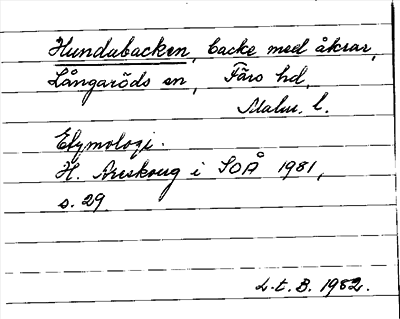 Hundubacken, backe med åkrar,
Långaröds sn, Färs hd,
Malm. l.
Etymologi.
H. Areskoug i SOÅ 1981,
s. 29.
L.t.B. 1982.